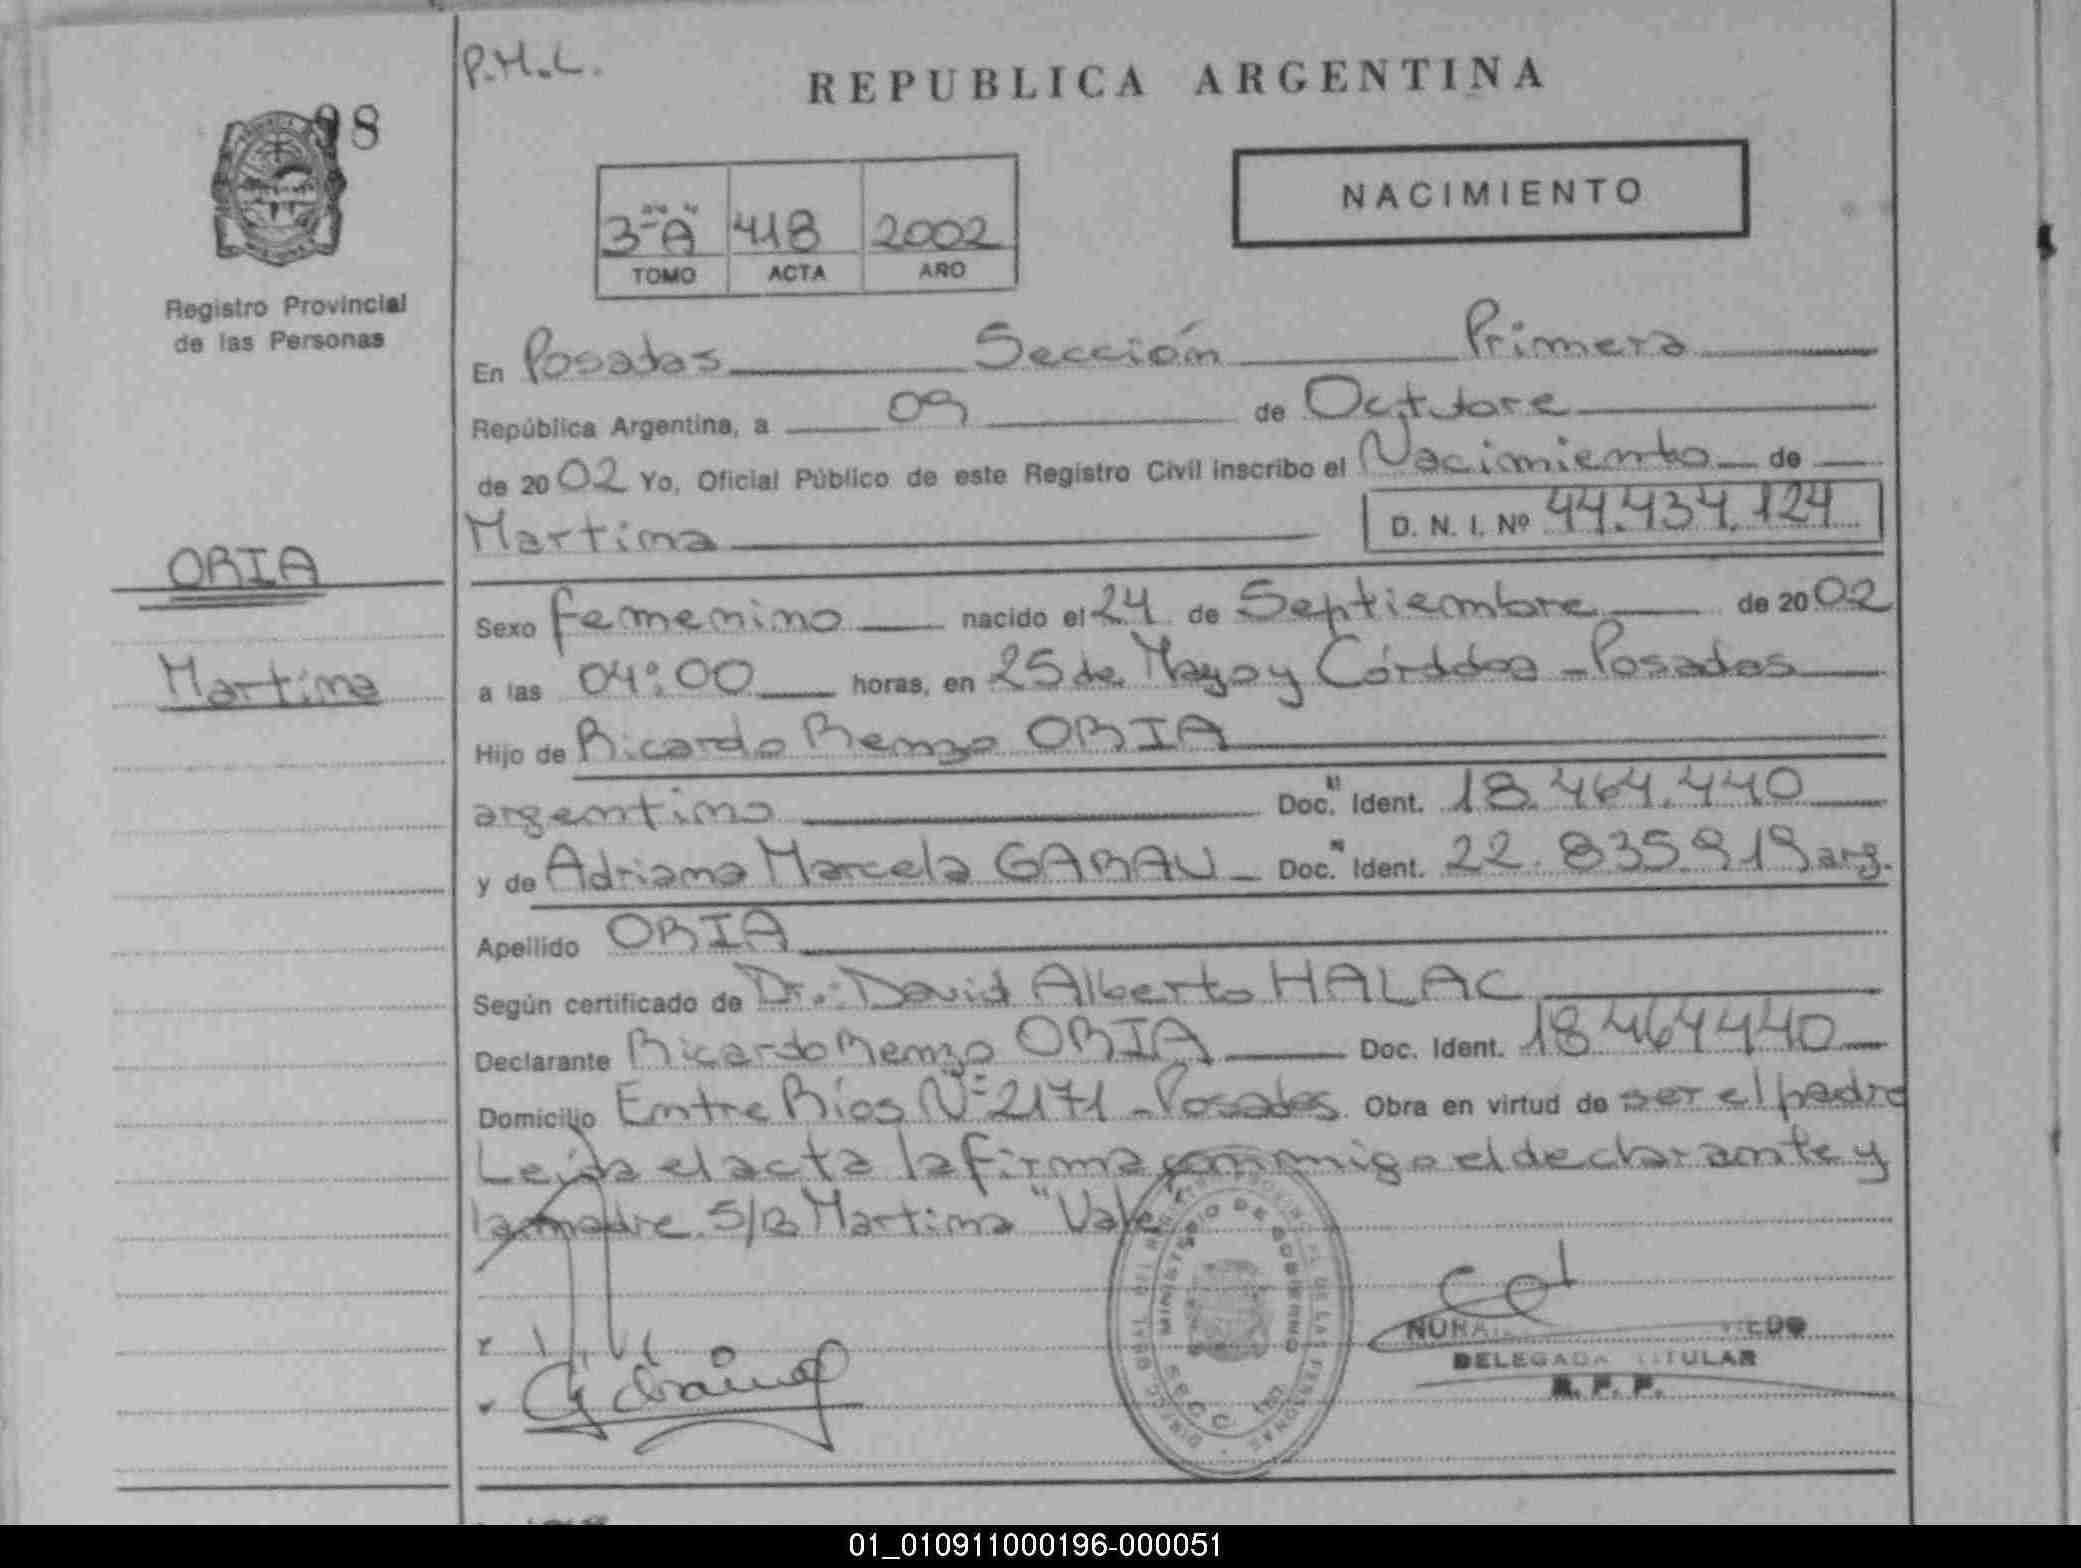 P.M.L.
REPUBLICA ARGENTINA
98
NACIMIENTO
3-"A" 418 2002
TOMO ACTA AÑO
Registro Provincial
de las Personas
En Posadas Sección Primera
República Argentina, a 09 de Octubre
de 2002 Yo, Oficial Público de este Registro Civil inscribo el Nacimiento de
Martina D. N. I. Nº 44.434.124
ORIA
Martina
Sexo femenino nacido el 24 de Septiembre de 2002
a las 04:00 horas, en 25 de Mayo y Córdoba - Posadas
Hijo de Ricardo Renzo ORIA
argentino Doc. Ident. 18.464.440
y de Adriana Marcela GARAU Doc. Ident. 22.835.919 arg.
Apellido ORIA
Según certificado de Dr.: David Alberto HALAC
Declarante Ricardo Renzo ORIA Doc. Ident. 18464440
Domicilio Entre Ríos Nº 2171 - Posados Obra en virtud de ser el padre
Leída el acta la firma conmigo el declarante y
la madre. S/B Martina "Vale"
MINISTERIO DE GOBIERNO
DELEGADA TITULAR
R. P. P.
01_010911000196-000051